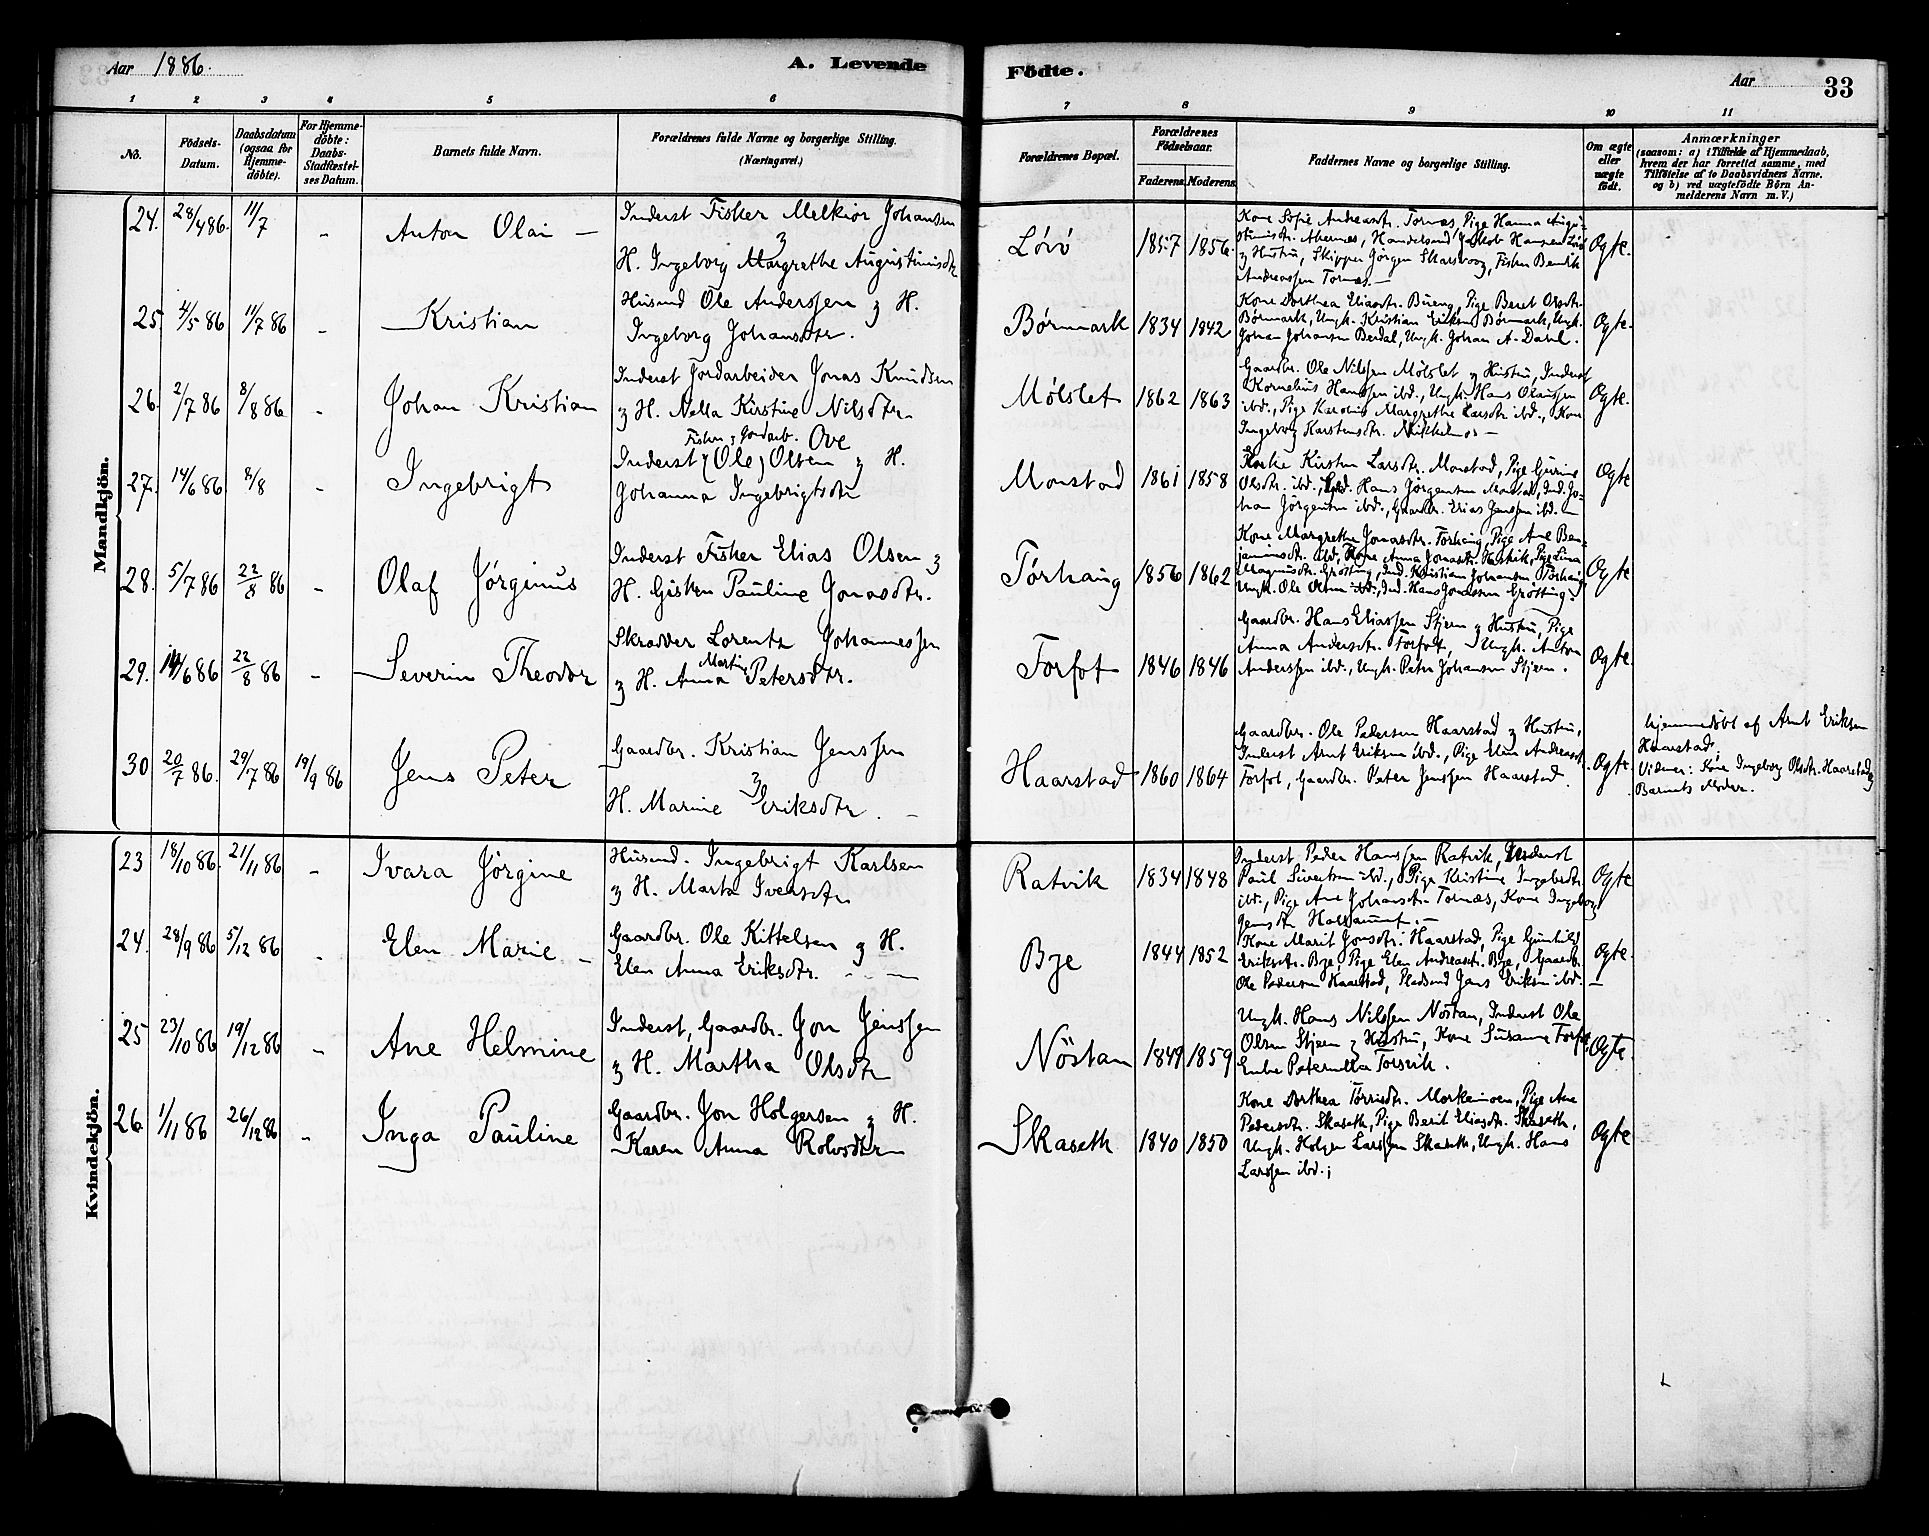 Aar 1886.
A. Levende
Födte.
Aar
33
1 2 3 4 5 6 7 8 9 10 11
No.
Födsels-
Datum.
Daabsdatum
(ogsaa for
Hjemme-
döbte).
For Hjemme-
döbte:
Daabs-
Stadfæstel-
ses Datum.
Barnets fulde Navn.
Forældrenes fulde Navne og borgerlige Stilling.
(Næringsvei.)
Forældrenes Bopæl.
Forældrenes
Födselsaar.
Faderens. Moderens.
Faddernes Navne og borgerlige Stilling.
Om ægte
eller
uægte
födt.
Anmærkninger
(saasom: a) i Tilfælde af Hjemmedaab,
hvem der har forrettet samme, med
Tilföielse af to Daabsvidners Navne.
og b) ved uægtefödte Börn An-
melderens Navn m. V.)
Mandkjön.
24. 28/4 86. 11/7 - Anton Olai -
Inderst Fisker Melkior Johansen
H. Ingeborg Margrethe Augustinisdtr
Lörö 1857 1856
Kone Sofie Andreasdtr. Tornes, Pige Hanna Augu-
stinisdtr. Akernes, Handelsmd Jakob Hansen Lörö
& Hustru, Skipper Jörgen Skarsvaag, Fisker Bendik
Andreassen Tornæs. -
Ægte.
25. 4/5 86 11/7 86 - Kristian
Husmd Ole Anderssen & H.
Ingeborg Johansdtr.
Börmark 1834 1842
Kone Dorthea Eliasdtr. Bueng, Pige Beret Olsdtr.
Börmark, Ungk. Kristian Eriksen Börmark, Ungk.
Johan Johansen Berdal, Ungk. Johan A. Dahl.
Ægte.
26. 2/7 86 8/8 86 - Johan Kristian
Inderst Jordarbeider Jonas Knudsen
& H. Nella Kirstine Nilsdtr
Mölslet 1862 1863
Gaardbr. Ole Nilssen Mölslet & Hustru, Inderst
Kornelius Hanssen ibd., Ungk. Hans Olaussen
ibd., Pige Karoline Margrethe Larsdtr ibd., Kone
Ingeborg Karstensdtr.
Ægte.
27. 14/6 86 8/8 - Ingebrigt
Fisker & Jordarb. Ove
Inderst (Ole) Olsen & H.
Johanna Ingebrigtsdtr
Monstad 1861 1858
Kirsten Larsdtr. Monstad, Pige Gurine
Olsdtr. ibd., Hans Jörgensen Monstad, Ind. Jo-
han Jörgensen ibd., Gaardbr. Elias Jenssen ibd. -
Ægte
28. 5/7 86 22/8 86 - Olaf Jörginus
Inderst Fisker Elias Olsen &
H. Gisken Pauline Jonasdtr.
Törhaug 1856 1862
Kone Margrethe Jonasdtr. Törhaug, Pige Ane Ben-
jaminsdtr. ibd., Kone Anna Jonasdtr. Pige Lina
Magnusdtr. Grötting, Ind. Kristian Johansen Törhaug
Ungk. Ole Olsen ibd., Ind. Hans Jonassen Grötting.
Ægte
29. 14/6 86 22/8 86 - Severin Theodor
Skrædder Lorentz Johannessen
& H. Anna Martine Petersdtr.
Forfot 1846 1846
Gaardbr. Hans Eliassen Stjern & Hustru, Pige
Anna Andersdtr. Forfot, Ungk. Anton
Anderssen ibd., Ungk. Peter Johansen Stjern.
Ægte.
30 20/7 86. 29/7 86 19/9 86 Jens Peter
Gaardbr. Kristian Jenssen
&
H. Marine Eriksdtr. -
Haarstad 1860 1864
Gaardbr. Ole Pedersen Haarstad & Hustru,
Inderst Arnt Eriksen ibd., Pige Elen Andreasdtr.
Forfot, Gaardbr. Peter Jenssen Haarstad.
Ægte.
hjemmedöbt af Arnt Eriksen
Haarstad.
Vidner: Kone Ingeborg Olsdtr. Haarstad &
Barnets Moder.
Kvindekjön.
23 18/10 86. 21/11 86 - Ivara Jörgine
Husmd. Ingebrigt Karlsen
& H. Marta Iversdtr
Ratvik 1834 1848
Inderst Peder Hanssen Ratvik, Inderst
Paul Sivertsen ibd., Pige Kristine Ingebrdtr
ibd., Pige Ane Johansdtr. Tornæs, Kone Ingeborg
Jensdtr
Ægte
24. 28/9 86 5/12 86 - Elen Marie -
Gaardbr. Ole Kittelsen & H.
Elen Anna Eriksdtr. - -
Bye 1844 1852
Kone Marit Jonsdtr. Haarstad, Pige Gunhild
Eriksdtr. Bye, Pige Elen Andreasdtr. Bye, Gaardb.
Ole Pedersen Haarstad, Pladsmd Jens Eriksen ibd. -
Ægte.
25 23/10 86 19/12 86 - Ane Helmine
Inderst, Gaardbr. Jon Jenssen
& H. Martha Olsdtr
Nöstan 1849 1859
Ungk. Hans Nilssen Nöstan, Inderst Ole
Olsen Stjern & Hustru, Kone Susanne Forfot,
Enke Peternella Torsvik.
Ægte.
26 1/11 86 26/12 86 - Inga Pauline
Gaardbr. Jon Holgersen & H.
Karen Anna Rolvsdtr
Skaseth 1840 1850
Kone Dorthea Torrisdtr. Morkemoen, Pige Ane
Pedersdtr. Skaseth, Pige Berit Eliasdtr. Skaseth,
Ungk. Holger Larssen Skaseth, Ungk. Hans
Larssen ibd.;
Ægte